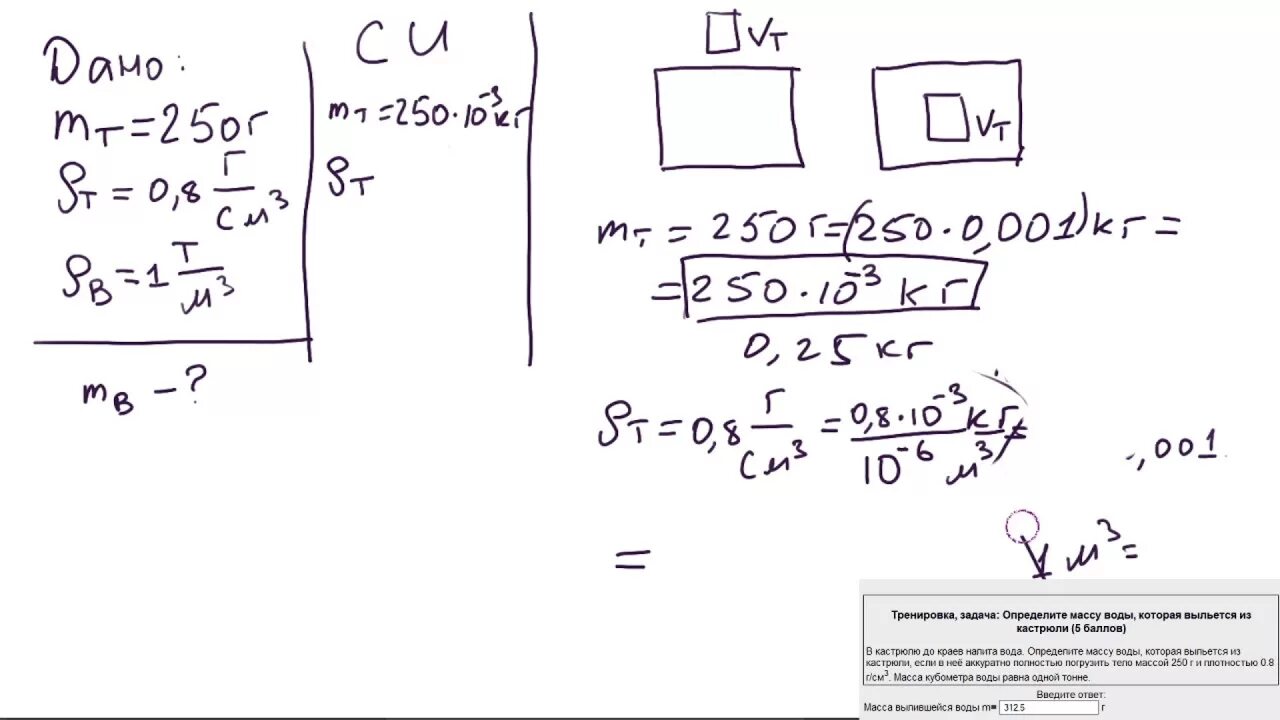 Дано:
mт = 250г
ρт = 0,8 г/см³
ρв = 1 т/м³
mв – ?
СИ
mт = 250·10⁻³ кг
ρт
Vт
Vт
mт = 250 г = (250·0,001) кг =
= 250·10⁻³ кг
0,25 кг
ρт = 0,8 г/см³ = 0,8·10⁻³ кг / 10⁻⁶ м³ =
,001
=
1 м³ =
Тренировка, задача: Определите массу воды, которая выльется из
кастрюли (5 баллов)
В кастрюлю до краев налита вода. Определите массу воды, которая выльется из
кастрюли, если в неё аккуратно полностью погрузить тело массой 250 г и плотностью 0.8
г/см³. Масса кубометра воды равна одной тонне.
Введите ответ:
Масса вылившейся воды m= 312.5 г